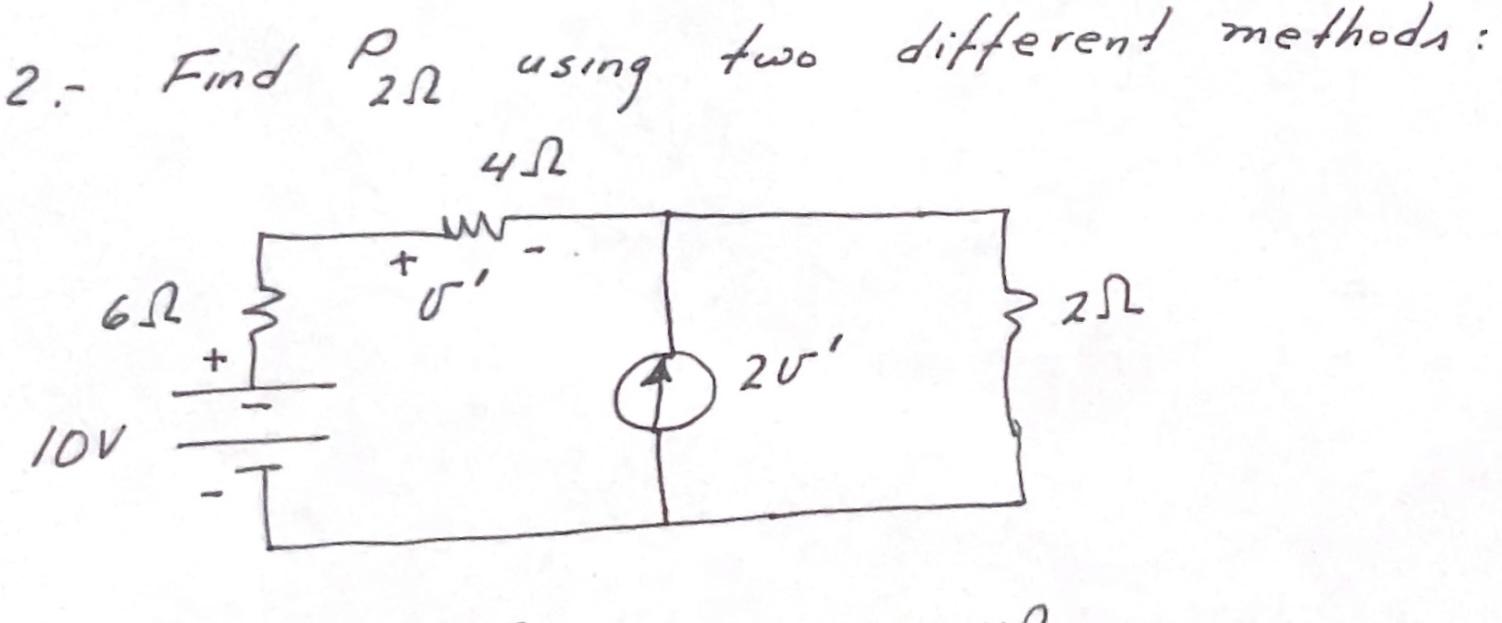 2.- Find P2Ω using two different methods:
4Ω
+ υ' -
6Ω
2Ω
+
2υ'
10V
-